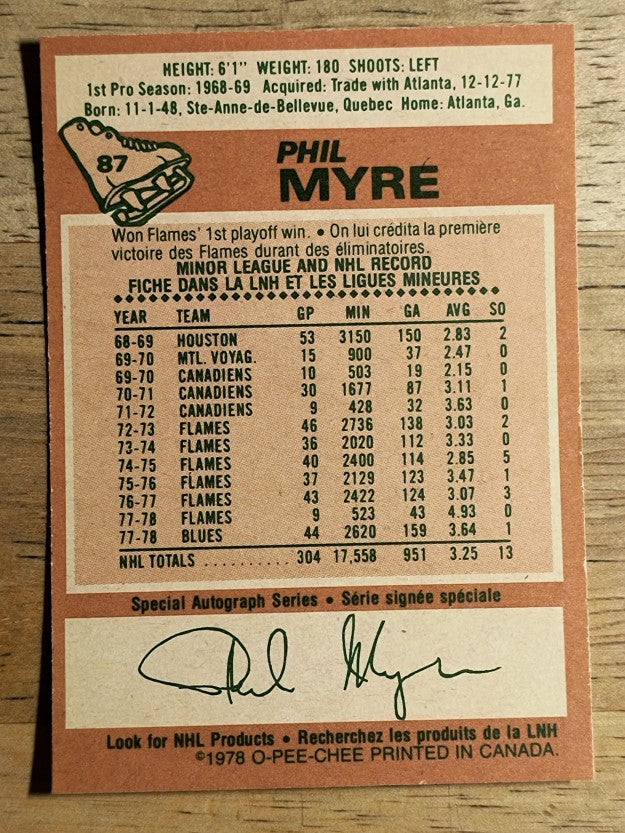 HEIGHT: 6'1" WEIGHT: 180 SHOOTS: LEFT
1st Pro Season: 1968-69 Acquired: Trade with Atlanta, 12-12-77
Born: 11-1-48, Ste-Anne-de-Bellevue, Quebec Home: Atlanta, Ga.
87
PHIL
MYRE
Won Flames' 1st playoff win. • On lui crédita la première
victoire des Flames durant des éliminatoires.
MINOR LEAGUE AND NHL RECORD
FICHE DANS LA LNH ET LES LIGUES MINEURES
YEAR TEAM GP MIN GA AVG SO
68-69 HOUSTON 53 3150 150 2.83 2
69-70 MTL. VOYAG. 15 900 37 2.47 0
69-70 CANADIENS 10 503 19 2.15 0
70-71 CANADIENS 30 1677 87 3.11 1
71-72 CANADIENS 9 428 32 3.63 0
72-73 FLAMES 46 2736 138 3.03 2
73-74 FLAMES 36 2020 112 3.33 0
74-75 FLAMES 40 2400 114 2.85 5
75-76 FLAMES 37 2129 123 3.47 1
76-77 FLAMES 43 2422 124 3.07 3
77-78 FLAMES 9 523 43 4.93 0
77-78 BLUES 44 2620 159 3.64 1
NHL TOTALS .......... 304 17,558 951 3.25 13
Special Autograph Series • Série signée spéciale
Phil Myre
Look for NHL Products • Recherchez les produits de la LNH
©1978 O-PEE-CHEE PRINTED IN CANADA.